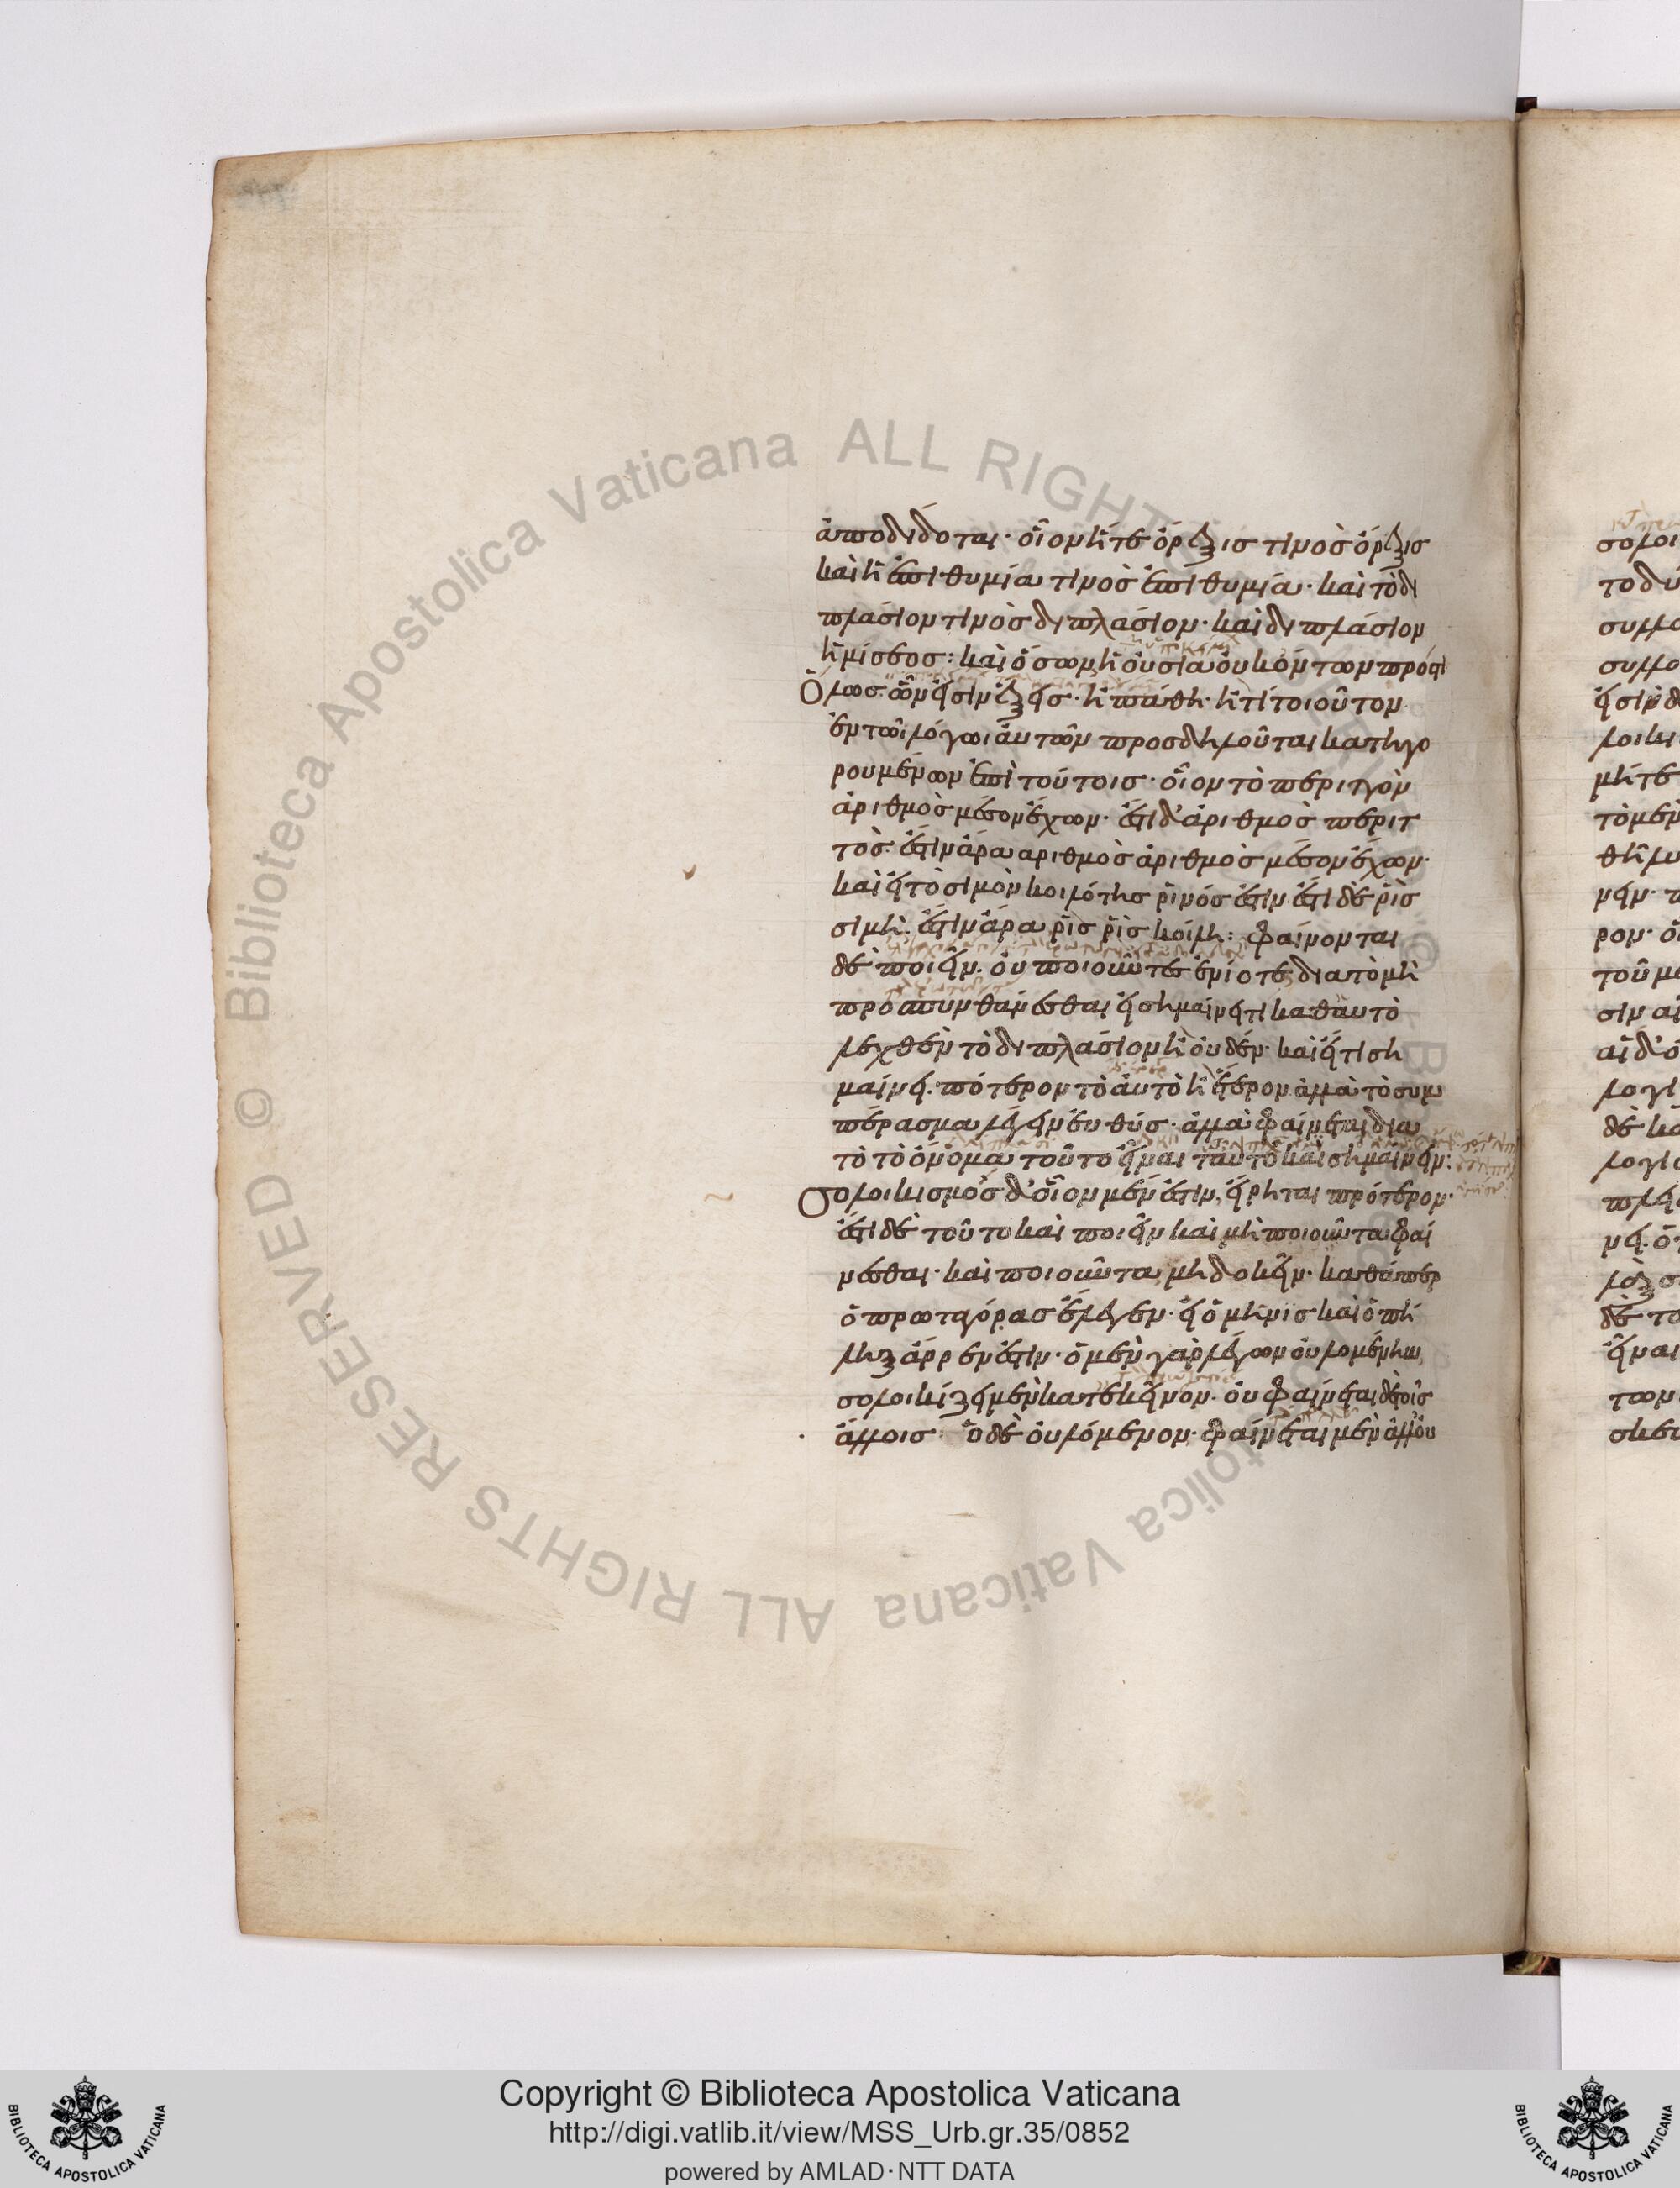 ἀποδίδοται· οἷον ἥτε ὄρεξις τινὸς ὄρεξις
καὶ ἡ ἐπιθυμία τινὸς ἐπιθυμία· καὶ τὸ δι
πλάσιον τινὸς διπλάσιον· καὶ διπλάσιον
ἡμίσεος: καὶ ὅσων ἡ οὐσία οὐκ ὄντων πρός τι
Ὅλως ὧν εἰσὶν ἕξεις· ἢ πάθη· ἤ τι τοιοῦτον
ἐν τῶι λόγωι αὐτῶν προσδηλοῦται κατηγο
ρουμένων ἐπὶ τούτοις· οἷον τὸ περιττὸν
ἀριθμὸς μέσον ἔχων· ἔστι δ' ἀριθμὸς περιτ
τὸς· ἔστιν ἄρα αριθμὸς ἀριθμὸς μέσον ἔχων·
καὶ εἰ τὸ σιμὸν κοιλότης ῥινός ἐστιν ἔστι δὲ ῥὶς
σιμὴ· ἔστιν ἄρα ῥὶς ῥὶς κοίλη: φαίνονται
δὲ ποιεῖν· οὐ ποιοῦντες ἐνίοτε διατὸμὴ
προσπυνθάνεσθαι εἰ σημαίνει τι καθαυτὸ
λεχθὲν τὸ διπλάσιον ἢ οὐδέν· καὶ εἴ τι ση
μαίνει· πότερον τὸ αὐτὸ ἢ ἕτερον ἀλλὰ τὸ συμ
πέρασμα λέγειν εὐθύς· ἀλλὰ φαίνεται δια
τὸ τὸ ὄνομα τοῦτο εἶναι ταυτὸ καὶ σημαίνειν:
σολοικισμὸς δ' οἷον μέν ἐστιν, εἴρηται πρότερον·
ἔστι δὲ τοῦτο καὶ ποιεῖν καὶ μὴ ποιοῦντα φαί
νεσθαι· καὶ ποιοῦντα μὴ δοκεῖν· καθάπερ
ὁ πρωταγόρας ἔλεγεν· εἰ ὁ μῆνις καὶ ὁ πή
ληξ ἄρρεν ἐστίν· ὁ μὲν γὰρ λέγων οὐλομένην
σολοικίζει μὲν κατ' ἐκεῖνον· οὐ φαίνεται δὲ τοῖς
ἄλλοις· ὁ δὲ οὐλόμενον· φαίνεται μὲν ἀλλ' οὐ
Copyright © Biblioteca Apostolica Vaticana
http://digi.vatlib.it/view/MSS_Urb.gr.35/0852
powered by AMLAD·NTT DATA